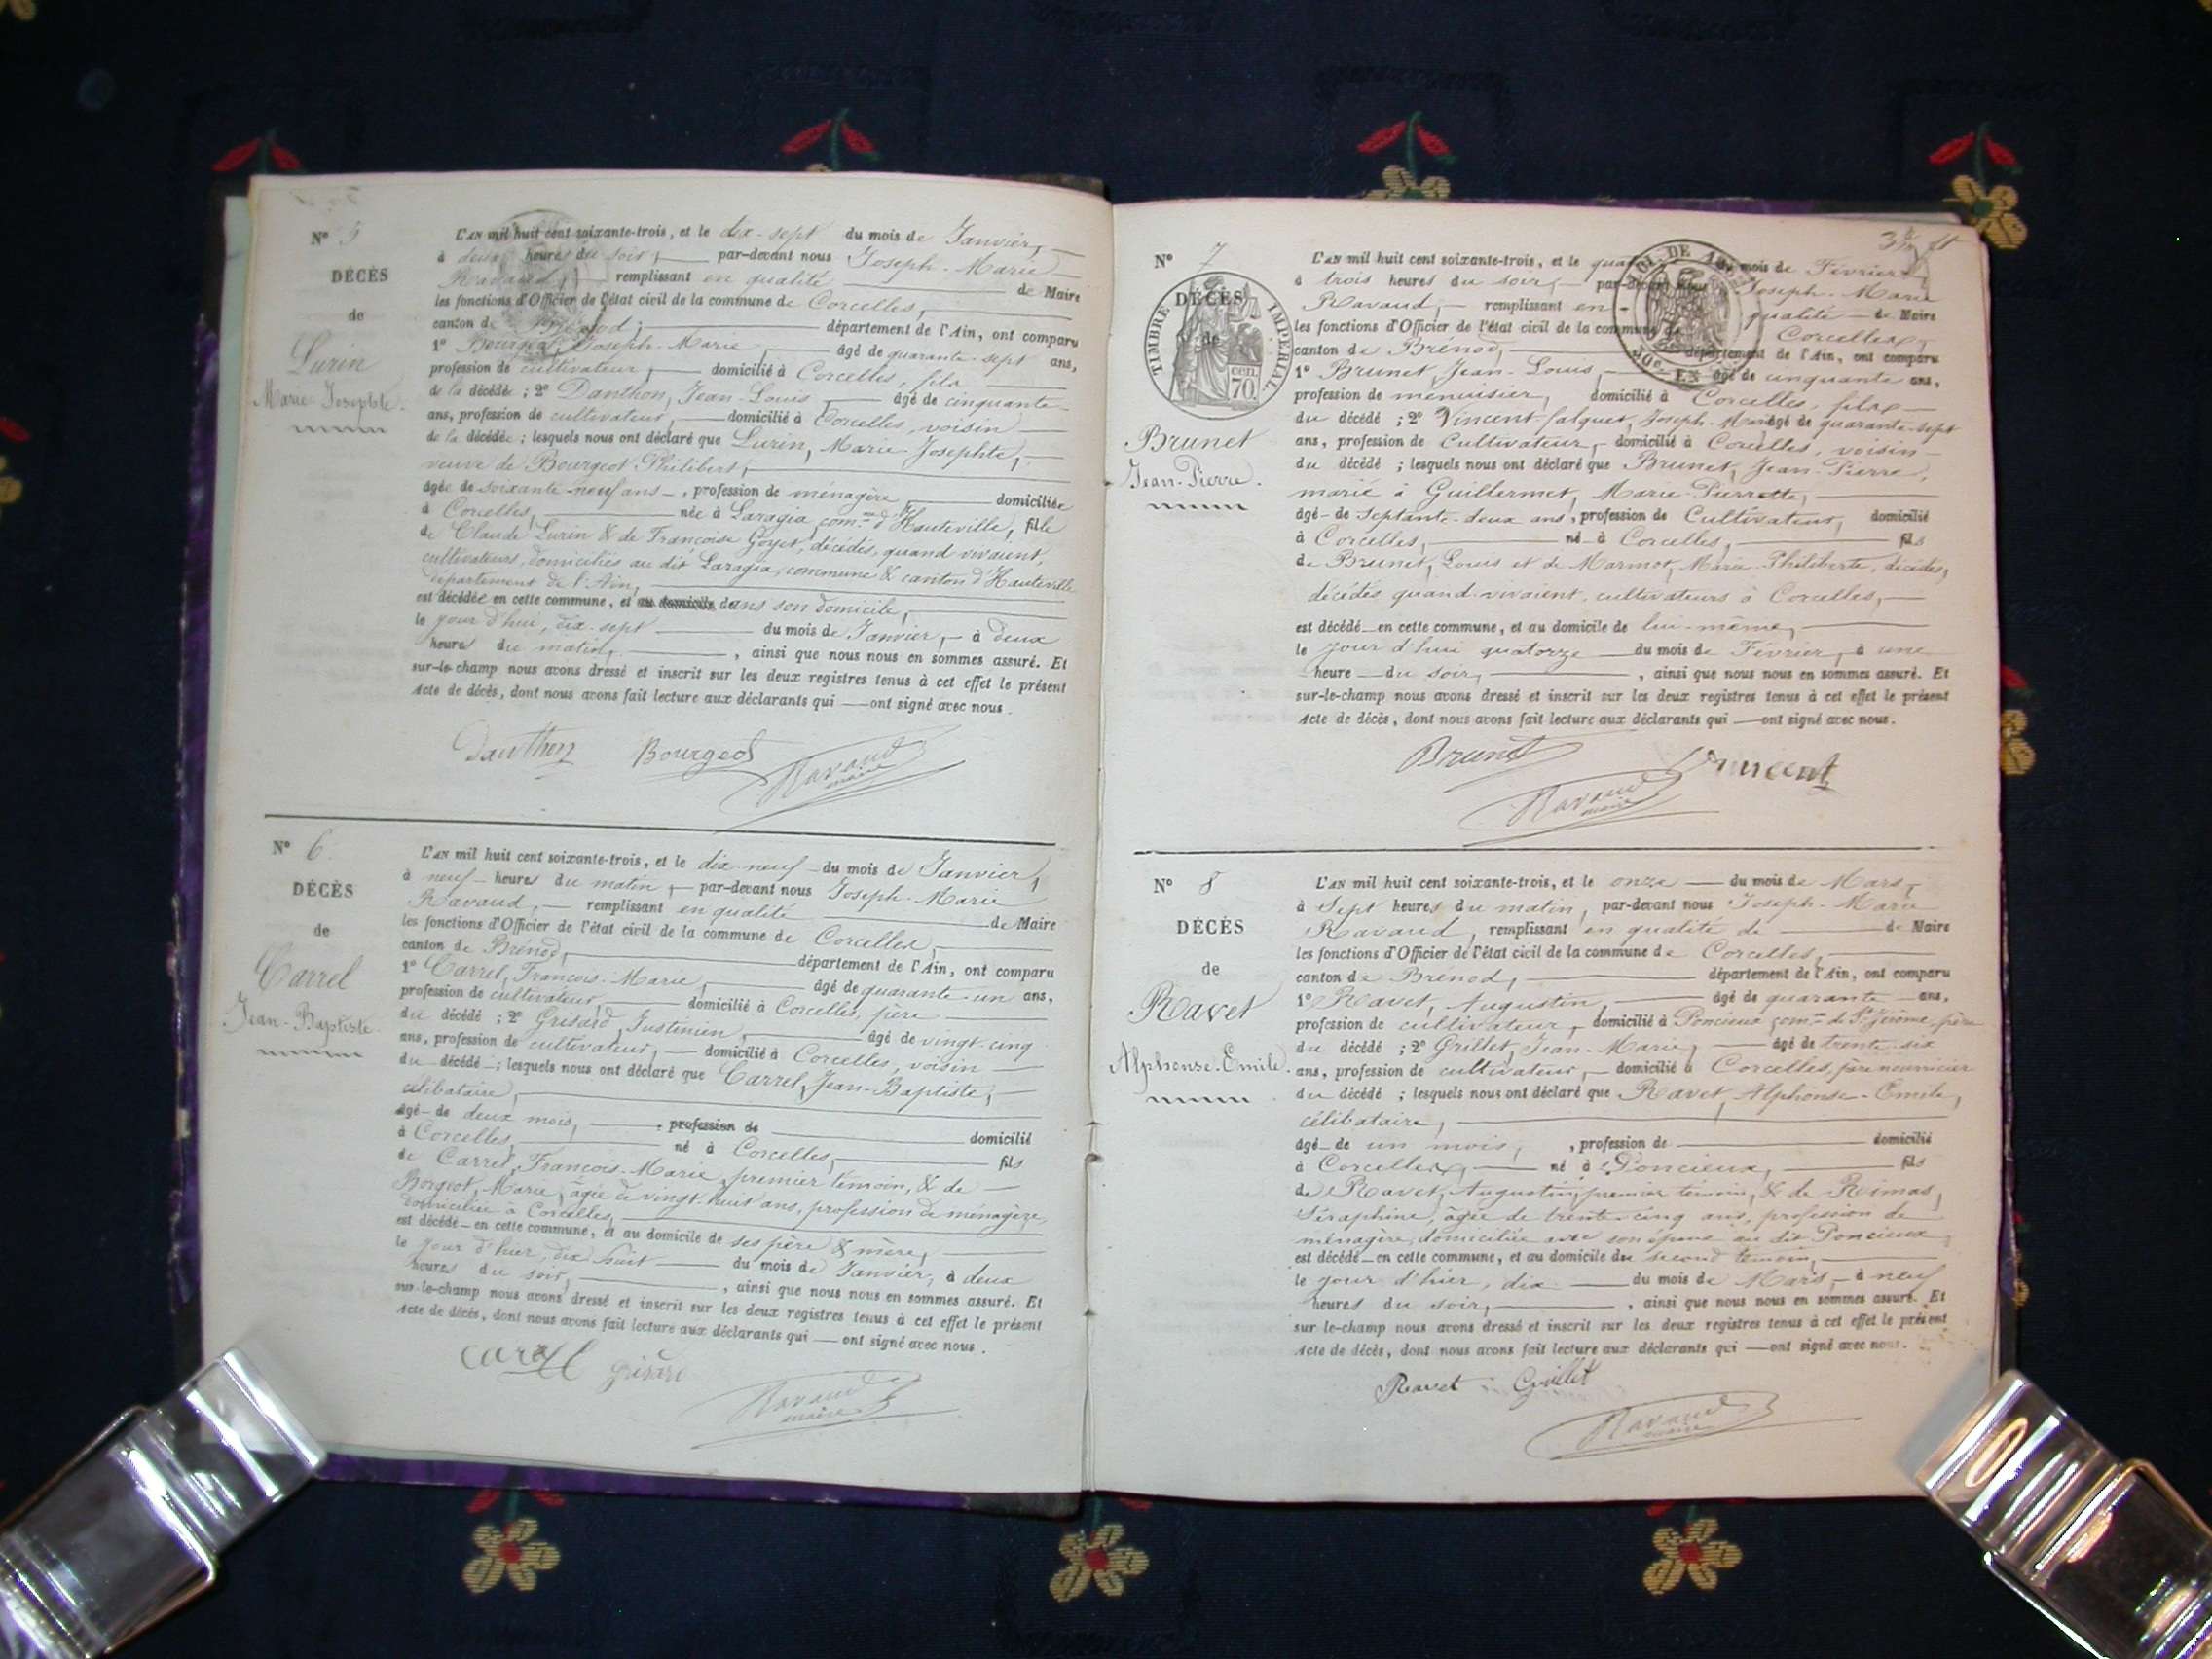 N° 5
DÉCÈS
de
Lurin
Marie Josephte.
L'AN mil huit cent soixante-trois, et le dix-sept du mois de Janvier,
à deux heures du soir, par-devant nous Joseph-Marie
Ravaud, remplissant en qualité de Maire
les fonctions d'Officier de l'état civil de la commune de Corcelles,
canton de Brénod, département de l'Ain, ont comparu
1° Bourgeot, Joseph-Marie, âgé de quarante-sept ans,
profession de cultivateur, domicilié à Corcelles, fils
de la décédée ; 2° Danthon, Jean-Louis, âgé de cinquante
ans, profession de cultivateur, domicilié à Corcelles, voisin
de la décédée ; lesquels nous ont déclaré que Lurin, Marie Josephte,
veuve de Bourgeot Philibert,
âgée de soixante-neuf ans, profession de ménagère, domiciliée
à Corcelles, née à Laragia, com.ne d'Hauteville, fille
de Claude Lurin & de Françoise Goyet, décédés, quand vivaient,
cultivateurs, domiciliés au dit Laragia, commune & canton d'Hauteville
département de l'Ain,
est décédée en cette commune, et au domicile dans son domicile,
le jour d'hui, dix-sept du mois de Janvier, à deux
heures du matin, , ainsi que nous nous en sommes assuré. Et
sur-le-champ nous avons dressé et inscrit sur les deux registres tenus à cet effet le présent
Acte de décès, dont nous avons fait lecture aux déclarants qui ont signé avec nous.
Danthon Bourgeot Ravaud
maire
N° 6
DÉCÈS
de
Carrel
Jean-Baptiste
L'AN mil huit cent soixante-trois, et le dix-neuf du mois de Janvier,
à neuf heures du matin, par-devant nous Joseph-Marie
Ravaud, remplissant en qualité de Maire
les fonctions d'Officier de l'état civil de la commune de Corcelles,
canton de Brénod, département de l'Ain, ont comparu
1° Carrel, François-Marie, âgé de quarante-un ans,
profession de cultivateur, domicilié à Corcelles, père
du décédé ; 2° Grisard, Justinien, âgé de vingt-cinq
ans, profession de cultivateur, domicilié à Corcelles, voisin
du décédé ; lesquels nous ont déclaré que Carrel, Jean-Baptiste,
célibataire,
âgé de deux mois, profession de domicilié
à Corcelles, né à Corcelles, fils
de Carrel, François-Marie, premier témoin, & de
Borgeot, Marie, âgée de vingt-huit ans, profession de ménagère,
domiciliée à Corcelles,
est décédé en cette commune, et au domicile de ses père & mère,
le jour d'hier, dix huit du mois de Janvier, à deux
heures du soir, , ainsi que nous nous en sommes assuré. Et
sur-le-champ nous avons dressé et inscrit sur les deux registres tenus à cet effet le présent
Acte de décès, dont nous avons fait lecture aux déclarants qui ont signé avec nous.
carrel grisard
Ravaud
maire
N° 7
DÉCÈS
de
TIMBRE IMPÉRIAL
70 cen.
Brunet
Jean-Pierre.
L'AN mil huit cent soixante-trois, et le du mois de Février
à trois heures du soir, par-devant nous Joseph-Marie
Ravaud, remplissant en qualité de Maire
les fonctions d'Officier de l'état civil de la commune de Corcelles,
canton de Brénod, département de l'Ain, ont comparu
1° Brunet, Jean-Louis, âgé de cinquante ans,
profession de menuisier, domicilié à Corcelles, fils
du décédé ; 2° Vincent-falquet, Joseph-Marie âgé de quarante-sept
ans, profession de Cultivateur, domicilié à Corcelles, voisin
du décédé ; lesquels nous ont déclaré que Brunet, Jean-Pierre,
marié à Guillermet, Marie-Pierrette,
âgé de septante-deux ans, profession de Cultivateur, domicilié
à Corcelles, né à Corcelles, fils
de Brunet, Louis et de Marmot, Marie-Philiberte, décédés,
décédés quand vivaient, cultivateurs à Corcelles,
est décédé en cette commune, et au domicile de lui-même,
le jour d'hui quatorze du mois de Février, à une
heure du soir, , ainsi que nous nous en sommes assuré. Et
sur-le-champ nous avons dressé et inscrit sur les deux registres tenus à cet effet le présent
Acte de décès, dont nous avons fait lecture aux déclarants qui ont signé avec nous.
Brunet Vincent
Ravaud
maire
N° 8
DÉCÈS
de
Ravet
Alphonse-Emile.
L'AN mil huit cent soixante-trois, et le onze du mois de Mars,
à sept heures du matin, par-devant nous Joseph-Marie
Ravaud, remplissant en qualité de de Maire
les fonctions d'Officier de l'état civil de la commune de Corcelles,
canton de Brénod, département de l'Ain, ont comparu
1° Ravet, Augustin, âgé de quarante ans,
profession de cultivateur, domicilié à Poncieux com.ne de St Jérôme, père
du décédé ; 2° Grillet, Jean-Marie, âgé de trente-six
ans, profession de cultivateur, domicilié à Corcelles, père nourricier
du décédé ; lesquels nous ont déclaré que Ravet, Alphonse-Emile,
célibataire,
âgé de un mois, , profession de domicilié
à Corcelles, né à Poncieux, fils
de Ravet, Augustin, premier témoin, & de Rimas,
Séraphine, âgée de trente-cinq ans, profession de
ménagère, domiciliée avec son époux au dit Poncieux,
est décédé en cette commune, et au domicile du second témoin,
le jour d'hier, dix du mois de Mars, à neuf
heures du soir, , ainsi que nous nous en sommes assuré. Et
sur-le-champ nous avons dressé et inscrit sur les deux registres tenus à cet effet le présent
Acte de décès, dont nous avons fait lecture aux déclarants qui ont signé avec nous.
Ravet Grillet
Ravaud
maire